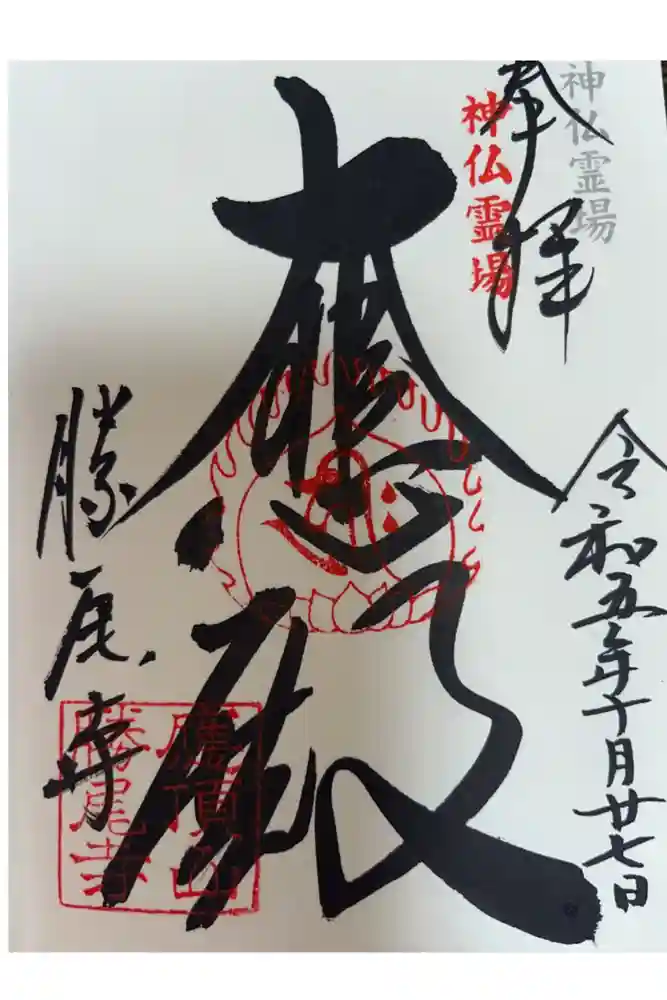 神仏霊場
奉拝
神仏霊場
令和五年十月廿七日
大悲殿
勝尾寺
應頂山
勝尾寺